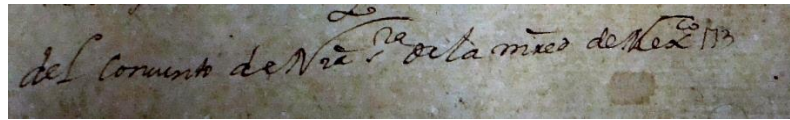 del Conuento de Nrã Sra de la mred de Mexco